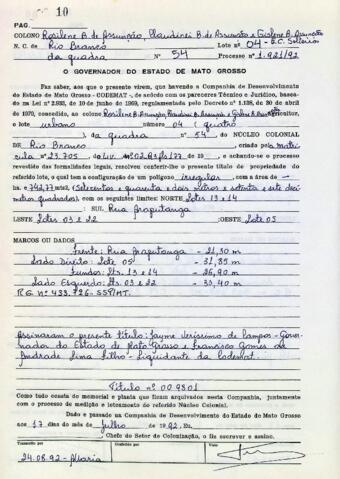 PAG. 10
COLONO Rosilene B. de Assunção, Claudinei B. de Assunção e Gislene B. Assunção
N. C. de Rio Branco Lote nº 04 - S.C. Solteiro
da quadra Nº 54 Processo nº 1.921/92
O GOVERNADOR DO ESTADO DE MATO GROSSO
Faz saber, aos que o presente virem, que havendo a Companhia de Desenvolvimento
do Estado de Mato Grosso - CODEMAT -, de acordo com os pareceres Técnico e Jurídico, basea-
dos na Lei nº 2.935, de 10 de junho de 1969, regulamentada pelo Decreto nº 1.138, de 30 de abril
de 1970, concedido, ao colono Rosilene B. Assunção, Claudinei B. Assunção e Gislene B. Assunção
o lote urbano número 04 (quatro)
da quadra nº 54 DO NÚCLEO COLONIAL
DE Rio Branco, criado pela matrí
cula nº 23.705 do Liv. nº 02. , e achando-se o processo
revestido das formalidades legais, resolveu conferir-lhe o presente título de propriedade
do referido lote, o qual tem a configuração de um polígono irregular, com a área de
742,77 mts2, (Setecentos e quarenta e dois metros e setenta e sete deci
metros quadrados), com os seguintes limites: NORTE Lotes 13 e 14
SUL Rua Arapitanga
LESTE Lotes 03 e 22 :OESTE Lote 05
MARCOS OU DADOS
Frente: Rua Arapitanga - 21,30 m
Lado Direito: Lote 05 - 31,85 m
Fundos: Lts. 13 e 14 - 26,90 m
Lado Esquerdo: Lts. 03 e 22 - 30,40 m
R.G. Nº 433.726-SSP/MT.
Assinaram o presente título: Jayme Veríssimo de Campos - Gover
nador do Estado de Mato Grosso e Francisco Gomes de
Andrade Lima Filho - Liquidante da Codemat.
Título nº 009801
Tudo como consta do memorial e planta que ficam arquivados nesta Companhia, juntamente
com o processo de medição e loteamento do referido Núcleo Colonial.
Dado e passado na Companhia de Desenvolvimento do Estado de Mato Grosso
aos 17 dias do mês de julho de 1992. Eu,
, Chefe do Setor de Colonização, o fiz escrever e assino.
Transcrito por Conferido Visto
24.08.92 -